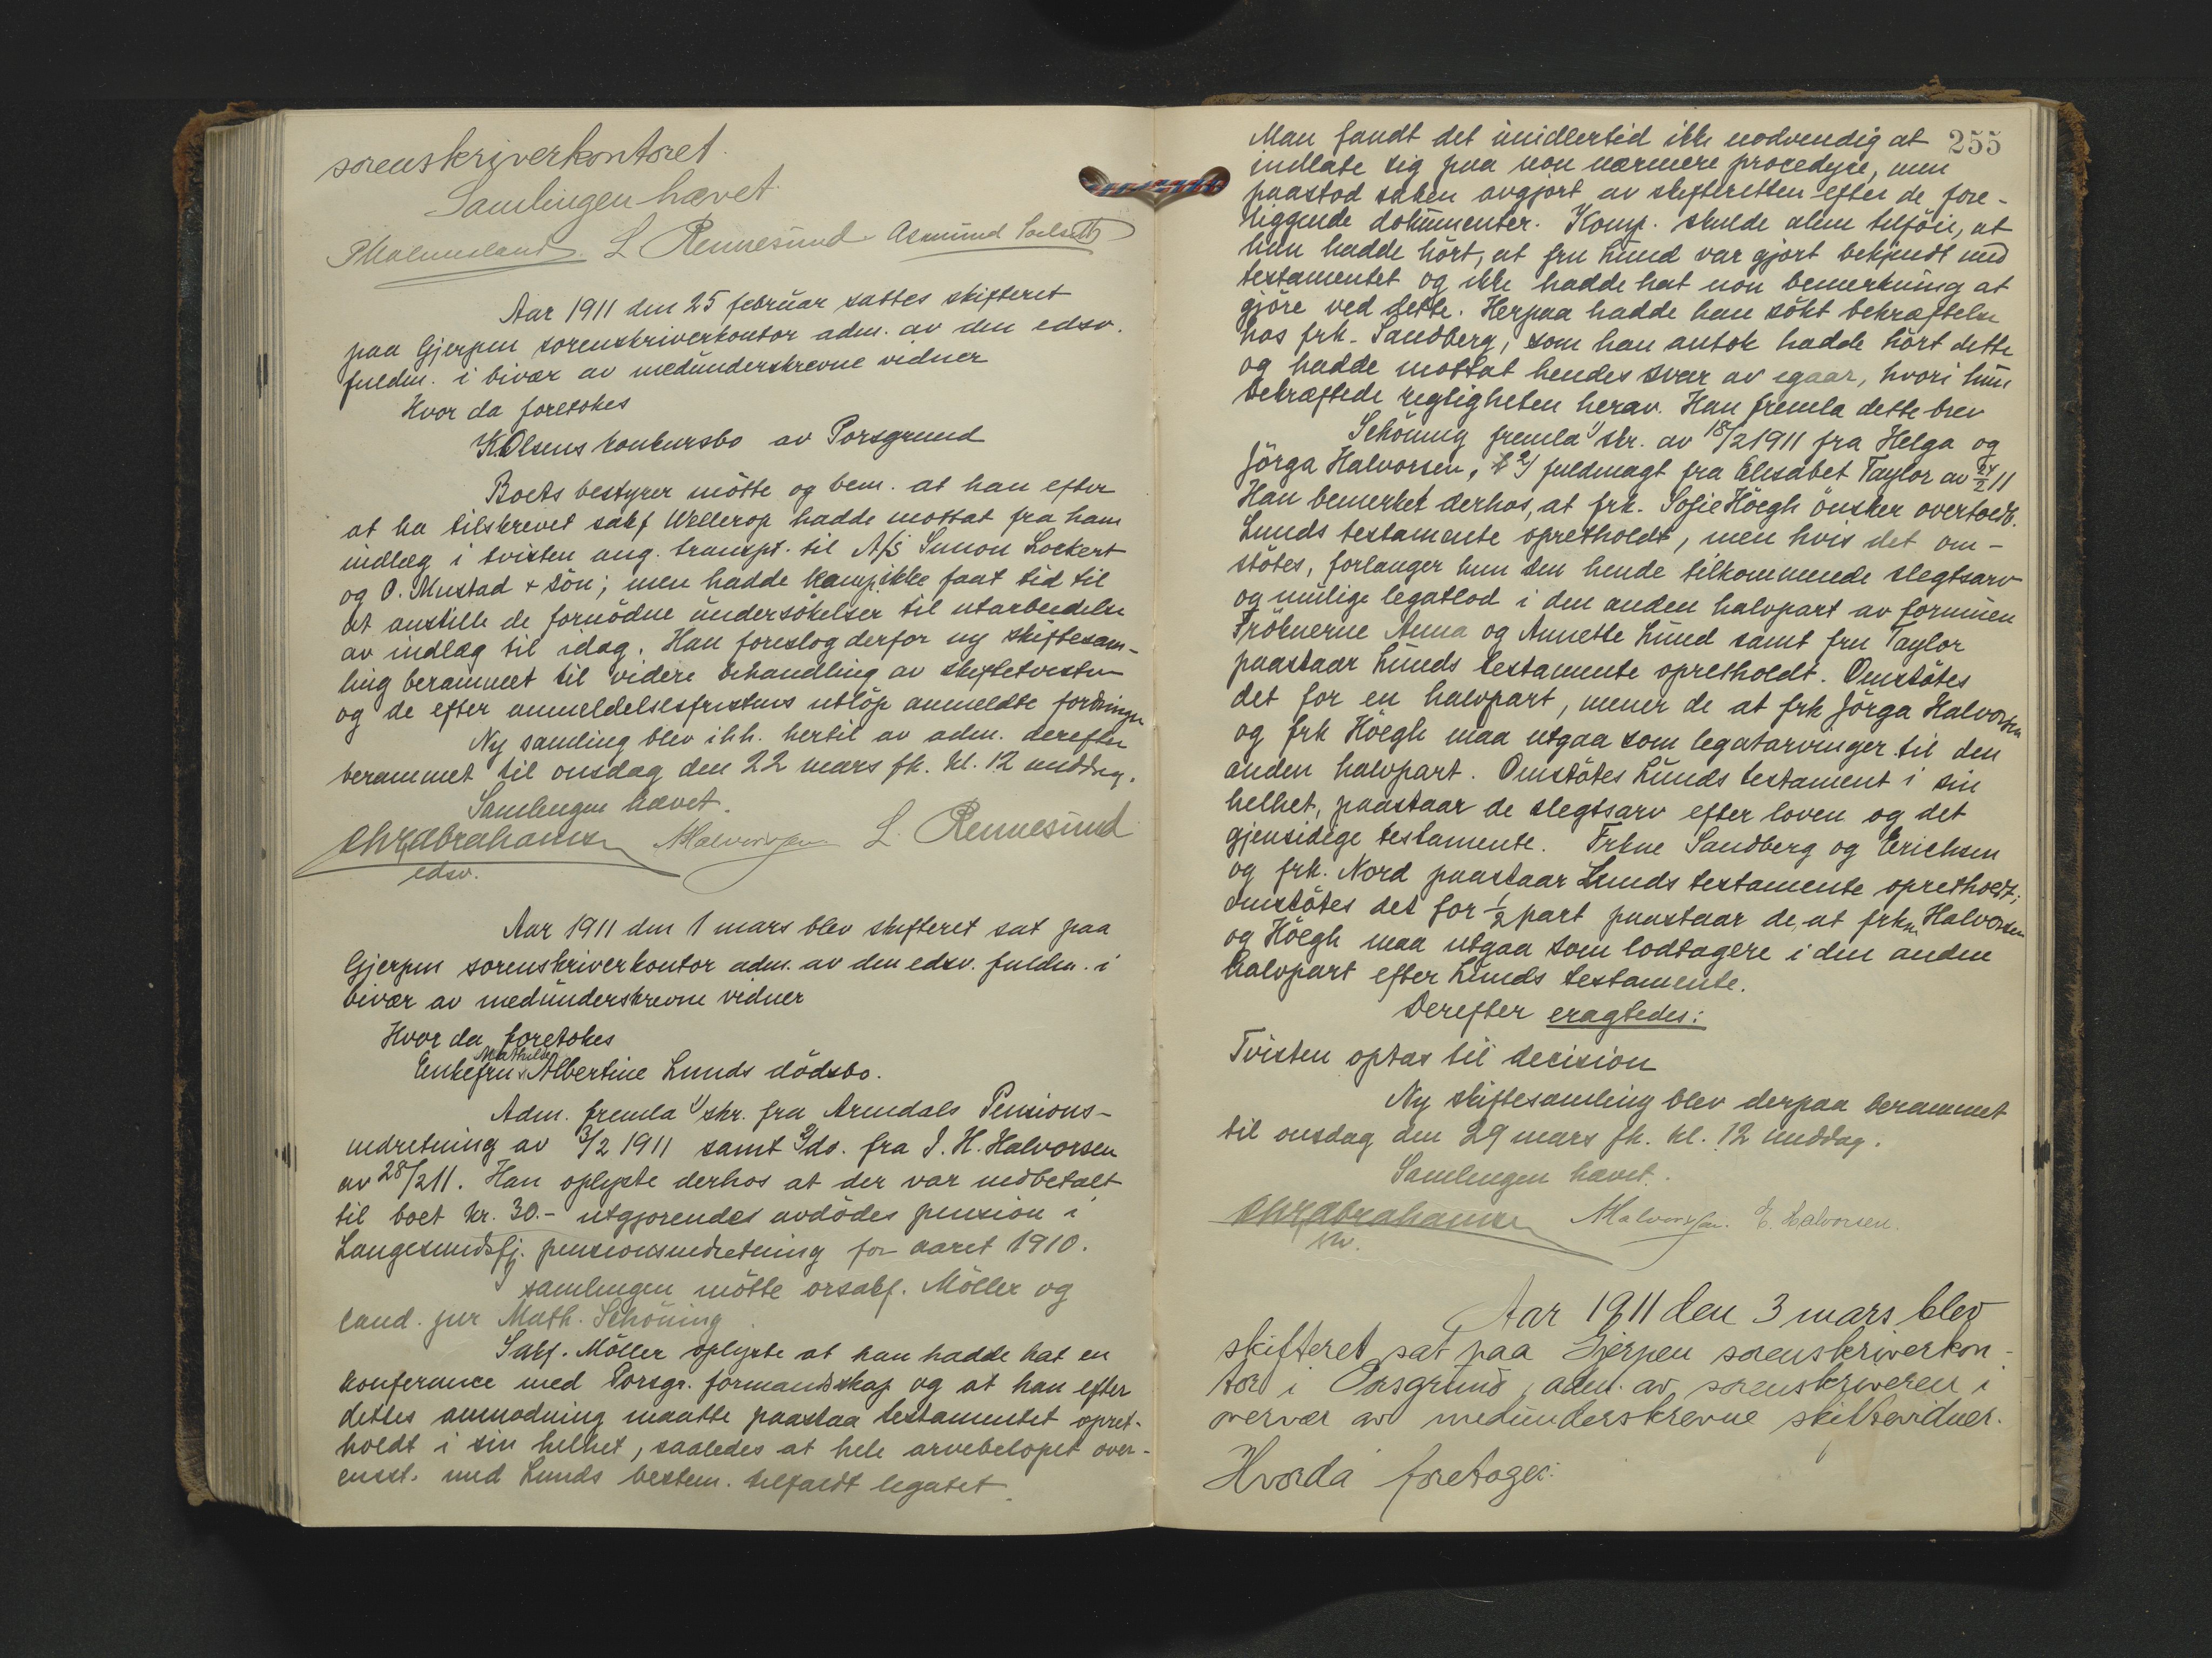 sorenskriverkontoret.
Samlingen hævet.
PMalmesland. L Rennesund Asmund
Aar 1911 den 25 februar sattes skifteret
paa Gjerpen sorenskriverkontor adm. av den edsv.
fuldm. i bivær av medunderskrevne vidner
Hvor da foretokes
K. Olsens konkursbo av Porsgrund
Boets bestyrer mötte og bem. at han efter
at ha tilskrevet sakf Wellerop hadde mottat fra ham
indlæg i tvisten ang. transpt. til A/S Simon Lockert
og O. Mustad + sön; men hadde komp. ikke faat tid til
at anstille de fornödne undersökelser til utarbeidelse
av indlæg til idag. Han foreslog derfor ny skiftesam-
ling berammet til videre behandling av skiftetvisten
og de efter anmeldelsesfristens utlöp anmeldte fordringer
Ny samling blev i hh. hertil av adm. derefter
berammet til onsdag den 22 mars fk. kl. 12 middag.
Samlingen hævet.
Chr Abrahamsen AHalvorsen L. Rennesund
edsv.
Aar 1911 den 1 mars blev skifteret sat paa
Gjerpen sorenskriverkontor adm. av den edsv. fuldm. i
bivær av medunderskrevne vidner
Hvor da foretokes
Mathilde
Enkefru v Albertine Lunds dödsbo.
Adm. fremla 1) skr. fra Arendals Pensions-
indretning av 3/2 1911 samt 2) do. fra J. H. Halvorsen
av 28/2 11. Han oplyste derhos at der var indbetalt
til boet kr. 30.- utgjorendes avdödes pension i
Langesundsfj. pensionsindretning for aaret 1910.
I samlingen mötte orsakf. Möller og
cand. jur Math. Schöning.
Sakf. Möller oplyste at han hadde hat en
konferance med Porsgr. formandskap og at han efter
dettes anmodning maatte paastaa testamentet opret-
holdt i sin helhet, saaledes at hele arvebelopet over-
ensst. med Lunds bestem. tilfaldt legatet.
255
Man fandt det imidlertid ikke nodvendig at
indlate sig paa non nærmere procedyre, men
paastod saken avgjort av skifteretten efter de fore-
liggende dokumenter. Komp. skulde alene tilföie, at
han hadde hört, at fru Lund var gjort bekjendt med
testamentet og ikke hadde hat non bemerkning at
gjöre ved dette. Herpaa hadde han sökt bekræftelse
hos frk. Sandberg, som han antok hadde hört dette
og hadde mottat hendes svar av igaar, hvori hun
bekræftede rigtigheten herav. Han fremla dette brev
Schöning fremla 1) skr. av 18/2 1911 fra Helga og
Jörga Halvorsen, 2) fuldmagt fra Elisabet Taylor av 24/2 11
Han bemerket derhos, at frk. Sofie Höegh önsker overtoldb.
Lunds testamente opretholdt, men hvis det om-
stötes, forlanger hun den hende tilkommende slegtsarv
og mulige legatlod i den anden halvpart av formuen
Fröknerne Anna og Annette Lund samt fru Taylor
paastaar Lunds testamente opretholdt. Omstötes
det for en halvpart, mener de at frk Jörga Halvorsen
og frk Höegh maa utgaa som legatarvinger til den
anden halvpart. Omstötes Lunds testament i sin
helhet, paastaar de slegtsarv efter loven og det
gjensidige testamente. Frkne Sandberg og Erichsen
og frk. Nord paastaar Lunds testamente opretholdt;
omstötes det for 1/2 part paastaar de, at frkne Halvorsen
og Höegh maa utgaa som lodtagere i den anden
halvpart efter Lunds testamente.
Derefter eragtedes:
Tvisten optas til decision
Ny skiftesamling blev derpaa berammet
til onsdag den 29 mars fk. kl. 12 middag.
Samlingen hævet.
Chr Abrahamsen AHalvorsen. E. Halvorsen.
Aar 1911 den 3 mars blev
skifteret sat paa Gjerpen sorenskriverkon-
tor i Porsgrund, adm. av sorenskriveren i
overvær av medunderskrevne skiftevidner.
Hvorda foretoges: